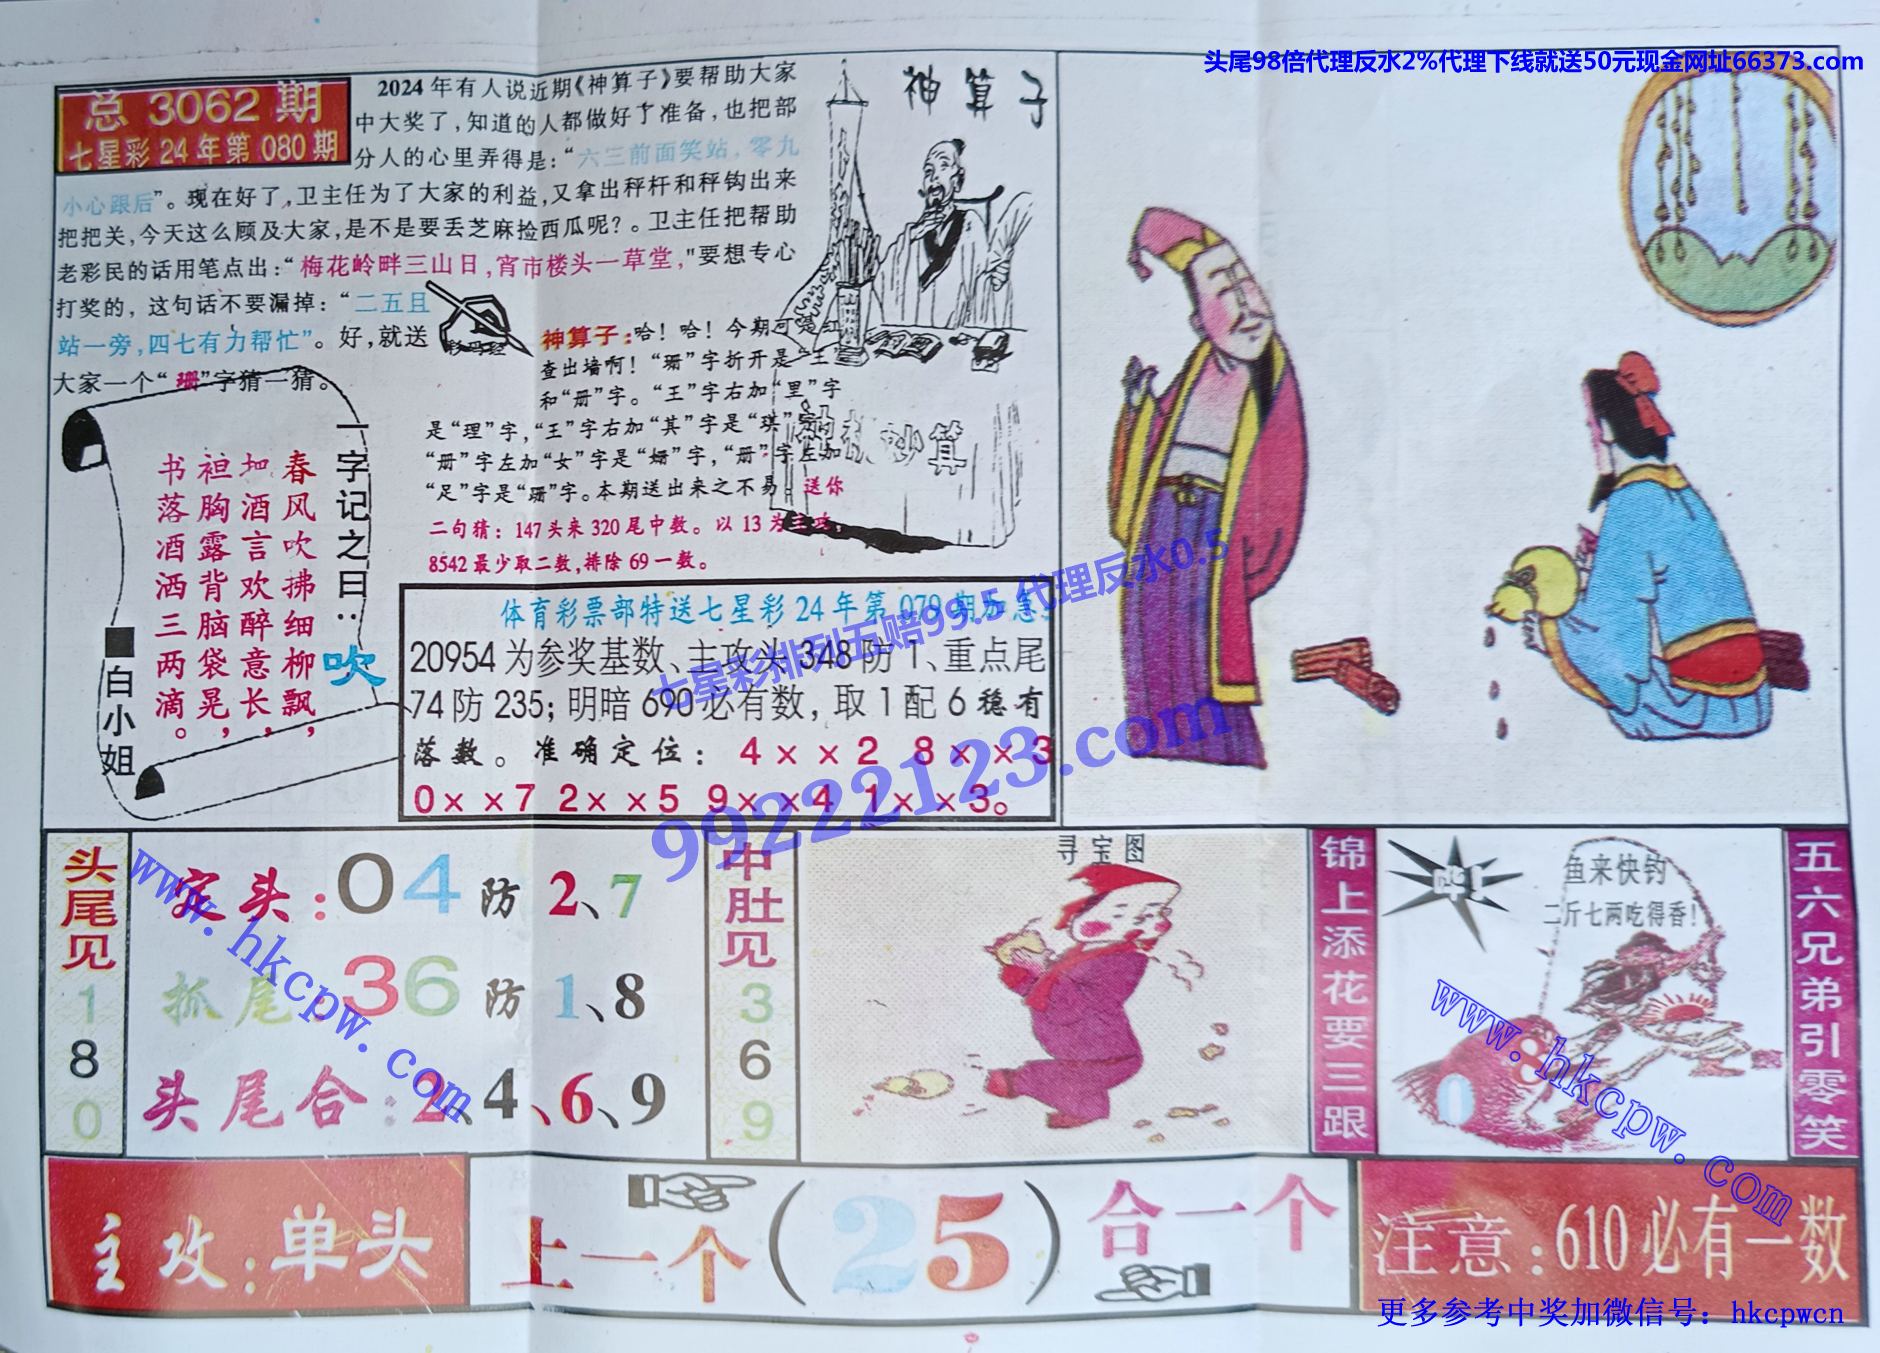 头尾98倍代理反水2%代理下线就送50元现金网址66373.com
总 3062 期
七星彩24年第080期
2024年有人说近期《神算子》要帮助大家
中大奖了，知道的人都做好了准备，也把部
分人的心里弄得是：“六三前面笑站，零九
小心跟后”。现在好了，卫主任为了大家的利益，又拿出秤杆和秤钩出来
把把关，今天这么顾及大家，是不是要丢芝麻捡西瓜呢？。卫主任把帮助
老彩民的话用笔点出：“梅花岭畔三山日，宵市楼头一草堂，"要想专心
打奖的，这句话不要漏掉：“二五且
站一旁，四七有力帮忙”。好，就送
大家一个“珊”字猜一猜。
神算子
神算子：哈！哈！今期可是红
查出墙啊！“珊”字折开是“王”
和“册”字。“王”字右加“里”字
是“理”字，“王”字右加“其”字是“琪”字
“册”字左加“女”字是“姗”字，“册”字左加
“足”字是“跚”字。本期送出来之不易：送你
二句猜：147头来320尾中数。以13为主攻，
8542最少取二数，排除69一数。
一字记之曰：吹
春风吹拂细柳飘，
加酒言欢醉意长，
袒胸露背脑袋晃，
书落酒洒三两滴。
■白小姐
体育彩票部特送七星彩24年第079期加急：
20954为参奖基数、主攻头348防1、重点尾
74防235；明暗690必有数，取1配6稳有
落数。准确定位：4××2 8××3
0××7 2××5 9××4 1××3。
七星彩排列五赔99.5 代理反水0.5
99222123.com
头尾见180
定头：04防2、7
抓尾：36防1、8
头尾合：2、4、6、9
www.hkcpw.com
中肚见369
寻宝图
锦上添花要三跟
鱼来快钓
二斤七两吃得香！
www.hkcpw.com
五六兄弟引零笑
主攻：单头
上一个（25）合一个
注意：610必有一数
更多参考中奖加微信号：hkcpwcn